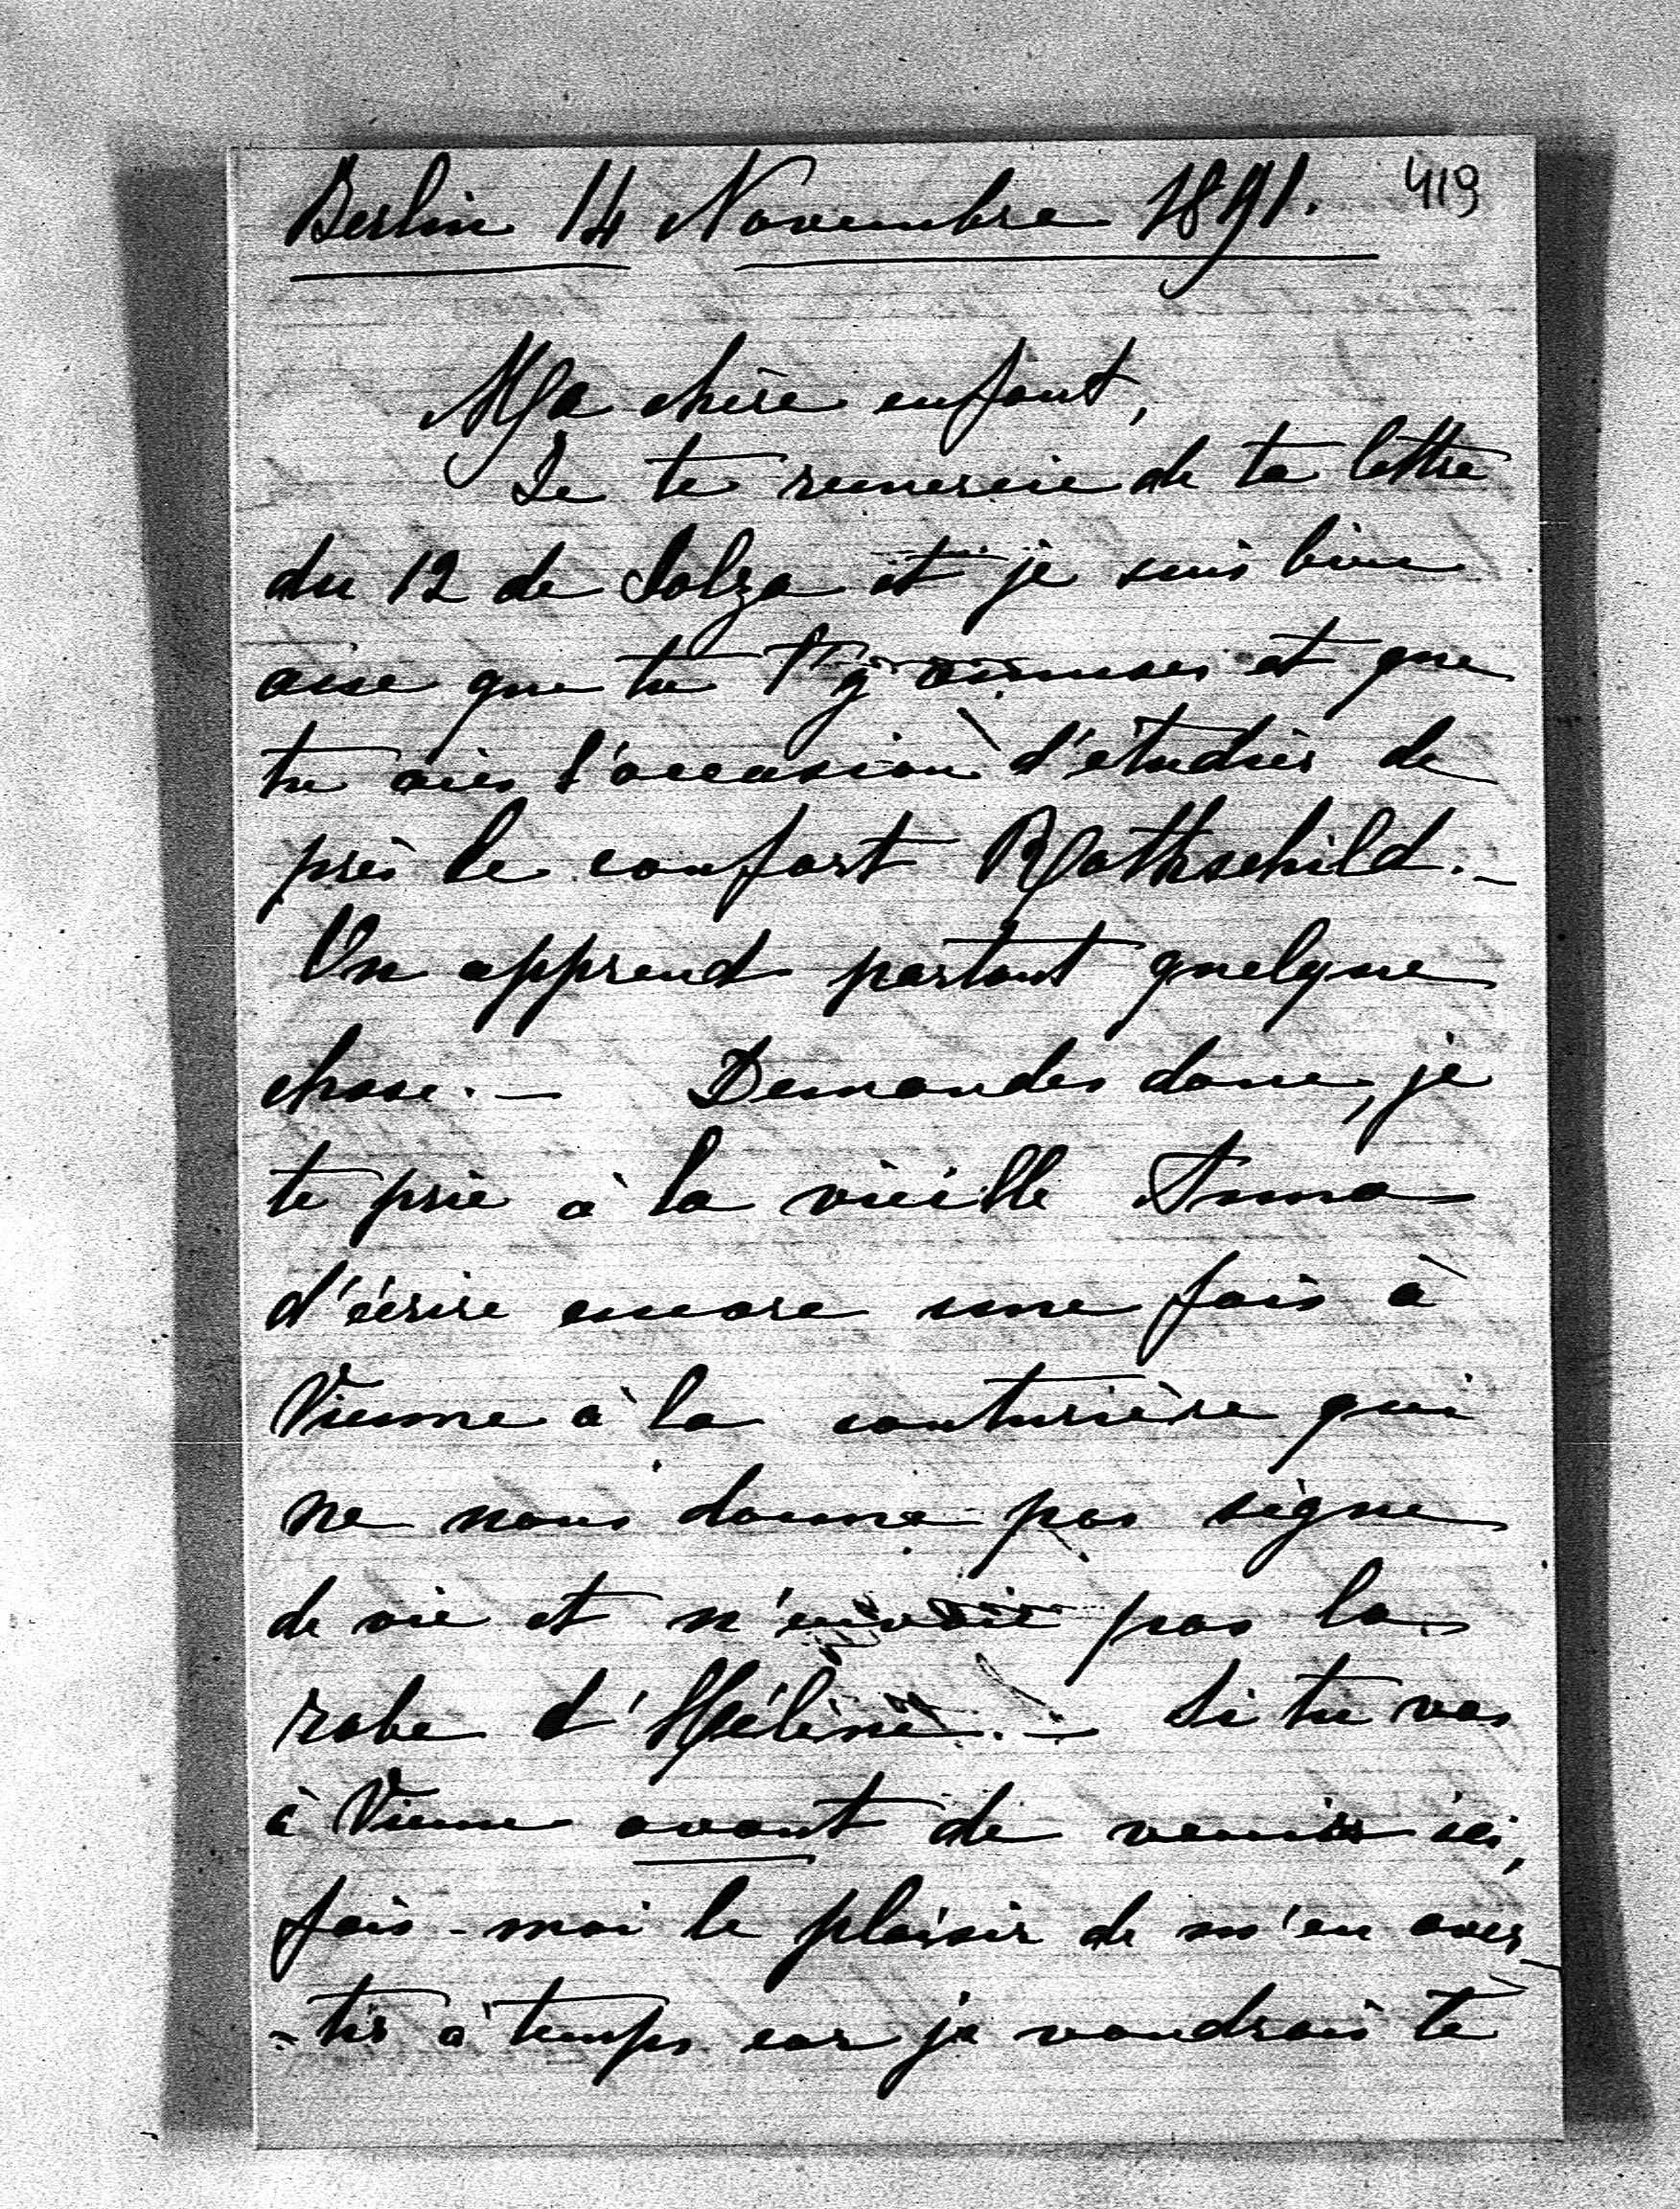 Berlin 14 Novembre 1891. 419
Ma chère enfant,
Je te remercie de ta lettre
du 12 de Solza et je suis bien
aise que tu t'y amuses et que
tu aies l'occasion d'étudier de
près le confort Rothschild. _
On apprend partout quelque
chose. _ Demandes donc, je
te prie à la vieille Anna
d'écrire encore une fois à
Vienne à la couturière qui
ne nous donne pas signe
de vie et n'envoie pas la
robe d'Hélène. _ Si tu vas
à Vienne avant de venir ici,
fais-moi le plaisir de m'en aver-
-tir à temps car je voudrais te